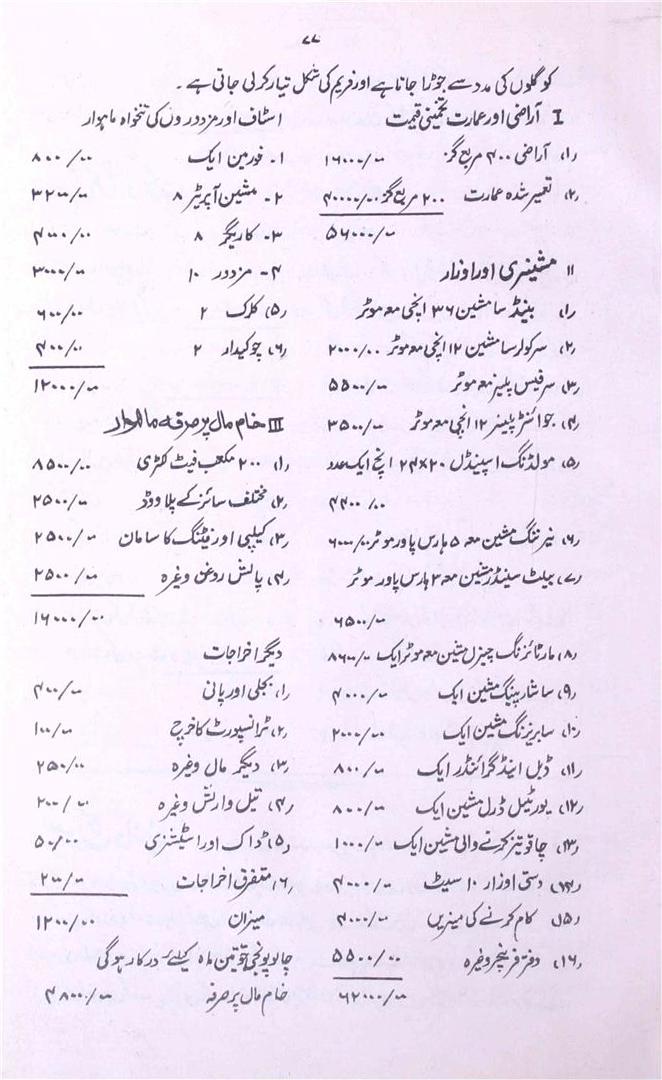 ۷۷
کو گلوں کی مدد سے جوڑا جاتا ہے اور فریم کی شکل تیار کر لی جاتی ہے۔
I آراضی اور عمارت تخمینی قیمت
۱) آراضی ۴۰۰ مربع گز ۱۶۰۰۰/۰۰
۲) تعمیر شدہ عمارت ۲۰۰ مربع گز ۴۰۰۰۰/۰۰
۵۶۰۰۰/۰۰
II مشینری اور اوزار
۱) بینڈ سا مشین ۳۶ انچی مع موٹر
۲) سرکولر سا مشین ۱۲ انچی مع موٹر ۲۰۰۰/۰۰
۳) سرفیس پلینر مع موٹر ۵۵۰۰/۰۰
۴) جوائنٹر پلینر ۱۲ انچی مع موٹر ۳۵۰۰/۰۰
۵) مولڈنگ اسپینڈل ۲۰×۲۴ انچ ایک عدد
۴۴۰۰/۰۰
۶) ٹیرننگ مشین معہ ۵ ہارس پاور موٹر ۶۰۰۰/۰۰
۷) بیلٹ سینڈر مشین معہ ۲ ہارس پاور موٹر
۶۵۰۰/۰۰
۸) مارٹائزنگ چیزل مشین مع موٹر ایک ۸۶۰۰/۰۰
۹) سا شارپننگ مشین ایک ۴۰۰۰/۰۰
۱۰) سابرنرنگ مشین ایک ۲۰۰۰/۰۰
۱۱) ڈبل اینڈ گرائنڈر ایک ۸۰۰/۰۰
۱۲) پورٹیبل ڈرل مشین ایک ۸۰۰/۰۰
۱۳) چاقو تیز کرنے والی مشین ایک ۱۰۰۰/۰۰
۱۴) دستی اوزار ۱۰ سیٹ ۴۰۰۰/۰۰
۱۵) کام کرنے کی میزیں ۴۰۰۰/۰۰
۱۶) دفتر فرنیچر وغیرہ ۵۵۰۰/۰۰
۶۲۰۰۰/۰۰
اسٹاف اور مزدوروں کی تنخواہ ماہوار
۱- فورمین ایک ۸۰۰/۰۰
۲- مشین آپریٹر ۸ ۳۲۰۰/۰۰
۳- کاریگر ۸ ۴۰۰۰/۰۰
۴- مزدور ۱۰ ۳۰۰۰/۰۰
۵) کلرک ۲ ۶۰۰/۰۰
۶) چوکیدار ۲ ۴۰۰/۰۰
۱۲۰۰۰/۰۰
III خام مال پر صرفہ ماہوار
۱) ۲۰۰ مکعب فیٹ لکڑی ۸۵۰۰/۰۰
۲) مختلف سائز کے پلاووڈ ۲۵۰۰/۰۰
۳) کیلیں اور فیٹنگ کا سامان ۲۵۰۰/۰۰
۴) پالش روغن وغیرہ ۲۵۰۰/۰۰
۱۶۰۰۰/۰۰
دیگر اخراجات
۱) بجلی اور پانی ۴۰۰/۰۰
۲) ٹرانسپورٹ کا خرچ ۱۰۰/۰۰
۳) دیگر مال وغیرہ ۲۵۰/۰۰
۴) تیل وارنش وغیرہ ۲۰۰/۰۰
۵) ڈاک اور اسٹیشنری ۵۰/۰۰
۶) متفرق اخراجات ۲۰۰/۰۰
میزان ۱۲۰۰/۰۰
چالو پونجی جو تین ماہ کیلئے درکار ہوگی
خام مال پر صرفہ ۴۸۰۰۰/۰۰